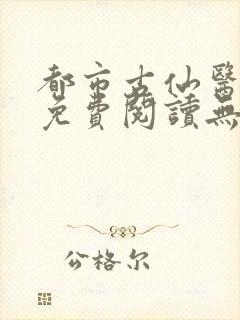 都市古仙醫
免費閱讀無
公格尔